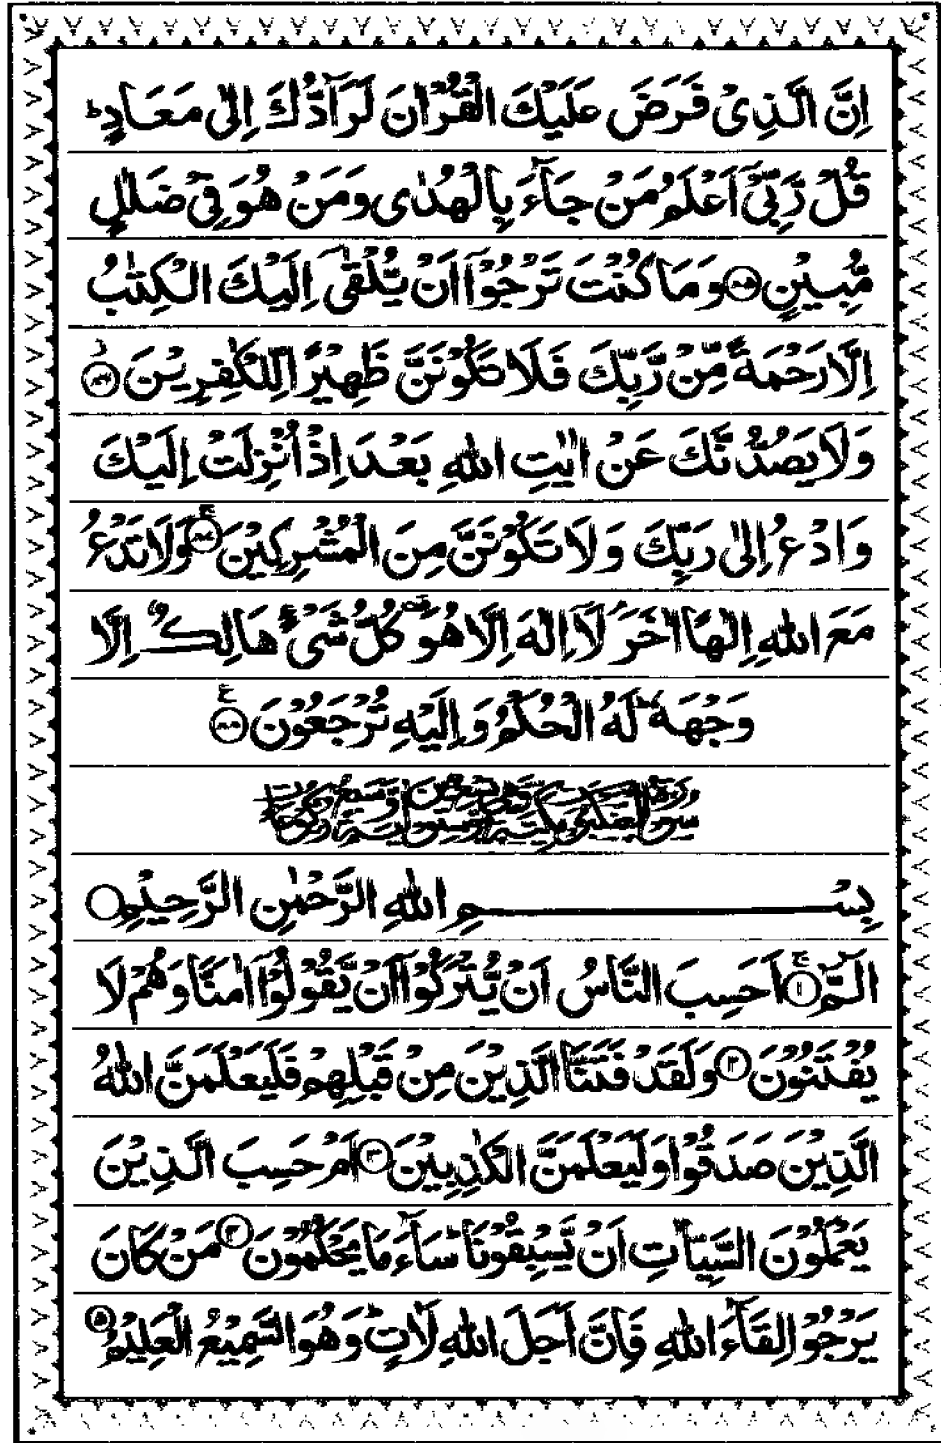 اِنَّ الَّذِیْ فَرَضَ عَلَیْكَ الْقُرْاٰنَ لَرَآدُّكَ اِلٰی مَعَادٍؕ
قُلْ رَّبِّیْۤ اَعْلَمُ مَنْ جَآءَ بِالْهُدٰی وَمَنْ هُوَ فِیْ ضَلٰلٍ
مُّبِیْنٍ ۝۸۵ وَمَا كُنْتَ تَرْجُوْۤا اَنْ یُّلْقٰۤی اِلَیْكَ الْكِتٰبُ
اِلَّا رَحْمَةً مِّنْ رَّبِّكَ فَلَا تَكُوْنَنَّ ظَهِیْرًا لِّلْكٰفِرِیْنَ ۝۸۶
وَلَا یَصُدُّنَّكَ عَنْ اٰیٰتِ اللّٰهِ بَعْدَ اِذْ اُنْزِلَتْ اِلَیْكَ
وَادْعُ اِلٰی رَبِّكَ وَلَا تَكُوْنَنَّ مِنَ الْمُشْرِكِیْنَ ۝۸۷ وَلَا تَدْعُ
مَعَ اللّٰهِ اِلٰهًا اٰخَرَ ۘ لَاۤ اِلٰهَ اِلَّا هُوَ ۫ كُلُّ شَیْءٍ هَالِكٌ اِلَّا
وَجْهَهٗ ؕ لَهُ الْحُكْمُ وَاِلَیْهِ تُرْجَعُوْنَ ۝۸۸
بِسْمِ اللّٰهِ الرَّحْمٰنِ الرَّحِیْمِ ۝
الٓمّٓ ۝۱ اَحَسِبَ النَّاسُ اَنْ یُّتْرَكُوْۤا اَنْ یَّقُوْلُوْۤا اٰمَنَّا وَهُمْ لَا
یُفْتَنُوْنَ ۝۲ وَلَقَدْ فَتَنَّا الَّذِیْنَ مِنْ قَبْلِهِمْ فَلَیَعْلَمَنَّ اللّٰهُ
الَّذِیْنَ صَدَقُوْا وَلَیَعْلَمَنَّ الْكٰذِبِیْنَ ۝۳ اَمْ حَسِبَ الَّذِیْنَ
یَعْمَلُوْنَ السَّیِّاٰتِ اَنْ یَّسْبِقُوْنَا ؕ سَآءَ مَا یَحْكُمُوْنَ ۝۴ مَنْ كَانَ
یَرْجُوْا لِقَآءَ اللّٰهِ فَاِنَّ اَجَلَ اللّٰهِ لَاٰتٍ ؕ وَهُوَ السَّمِیْعُ الْعَلِیْمُ ۝۵